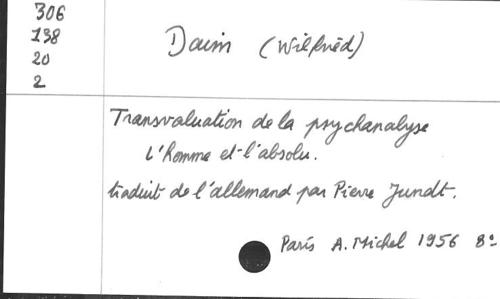 306
138
20
2
Daim (Wilfried)
Transvaluation de la psychanalyse
L'homme et l'absolu.
traduit de l'allemand par Pierre Jundt.
Paris A. Michel 1956 8°